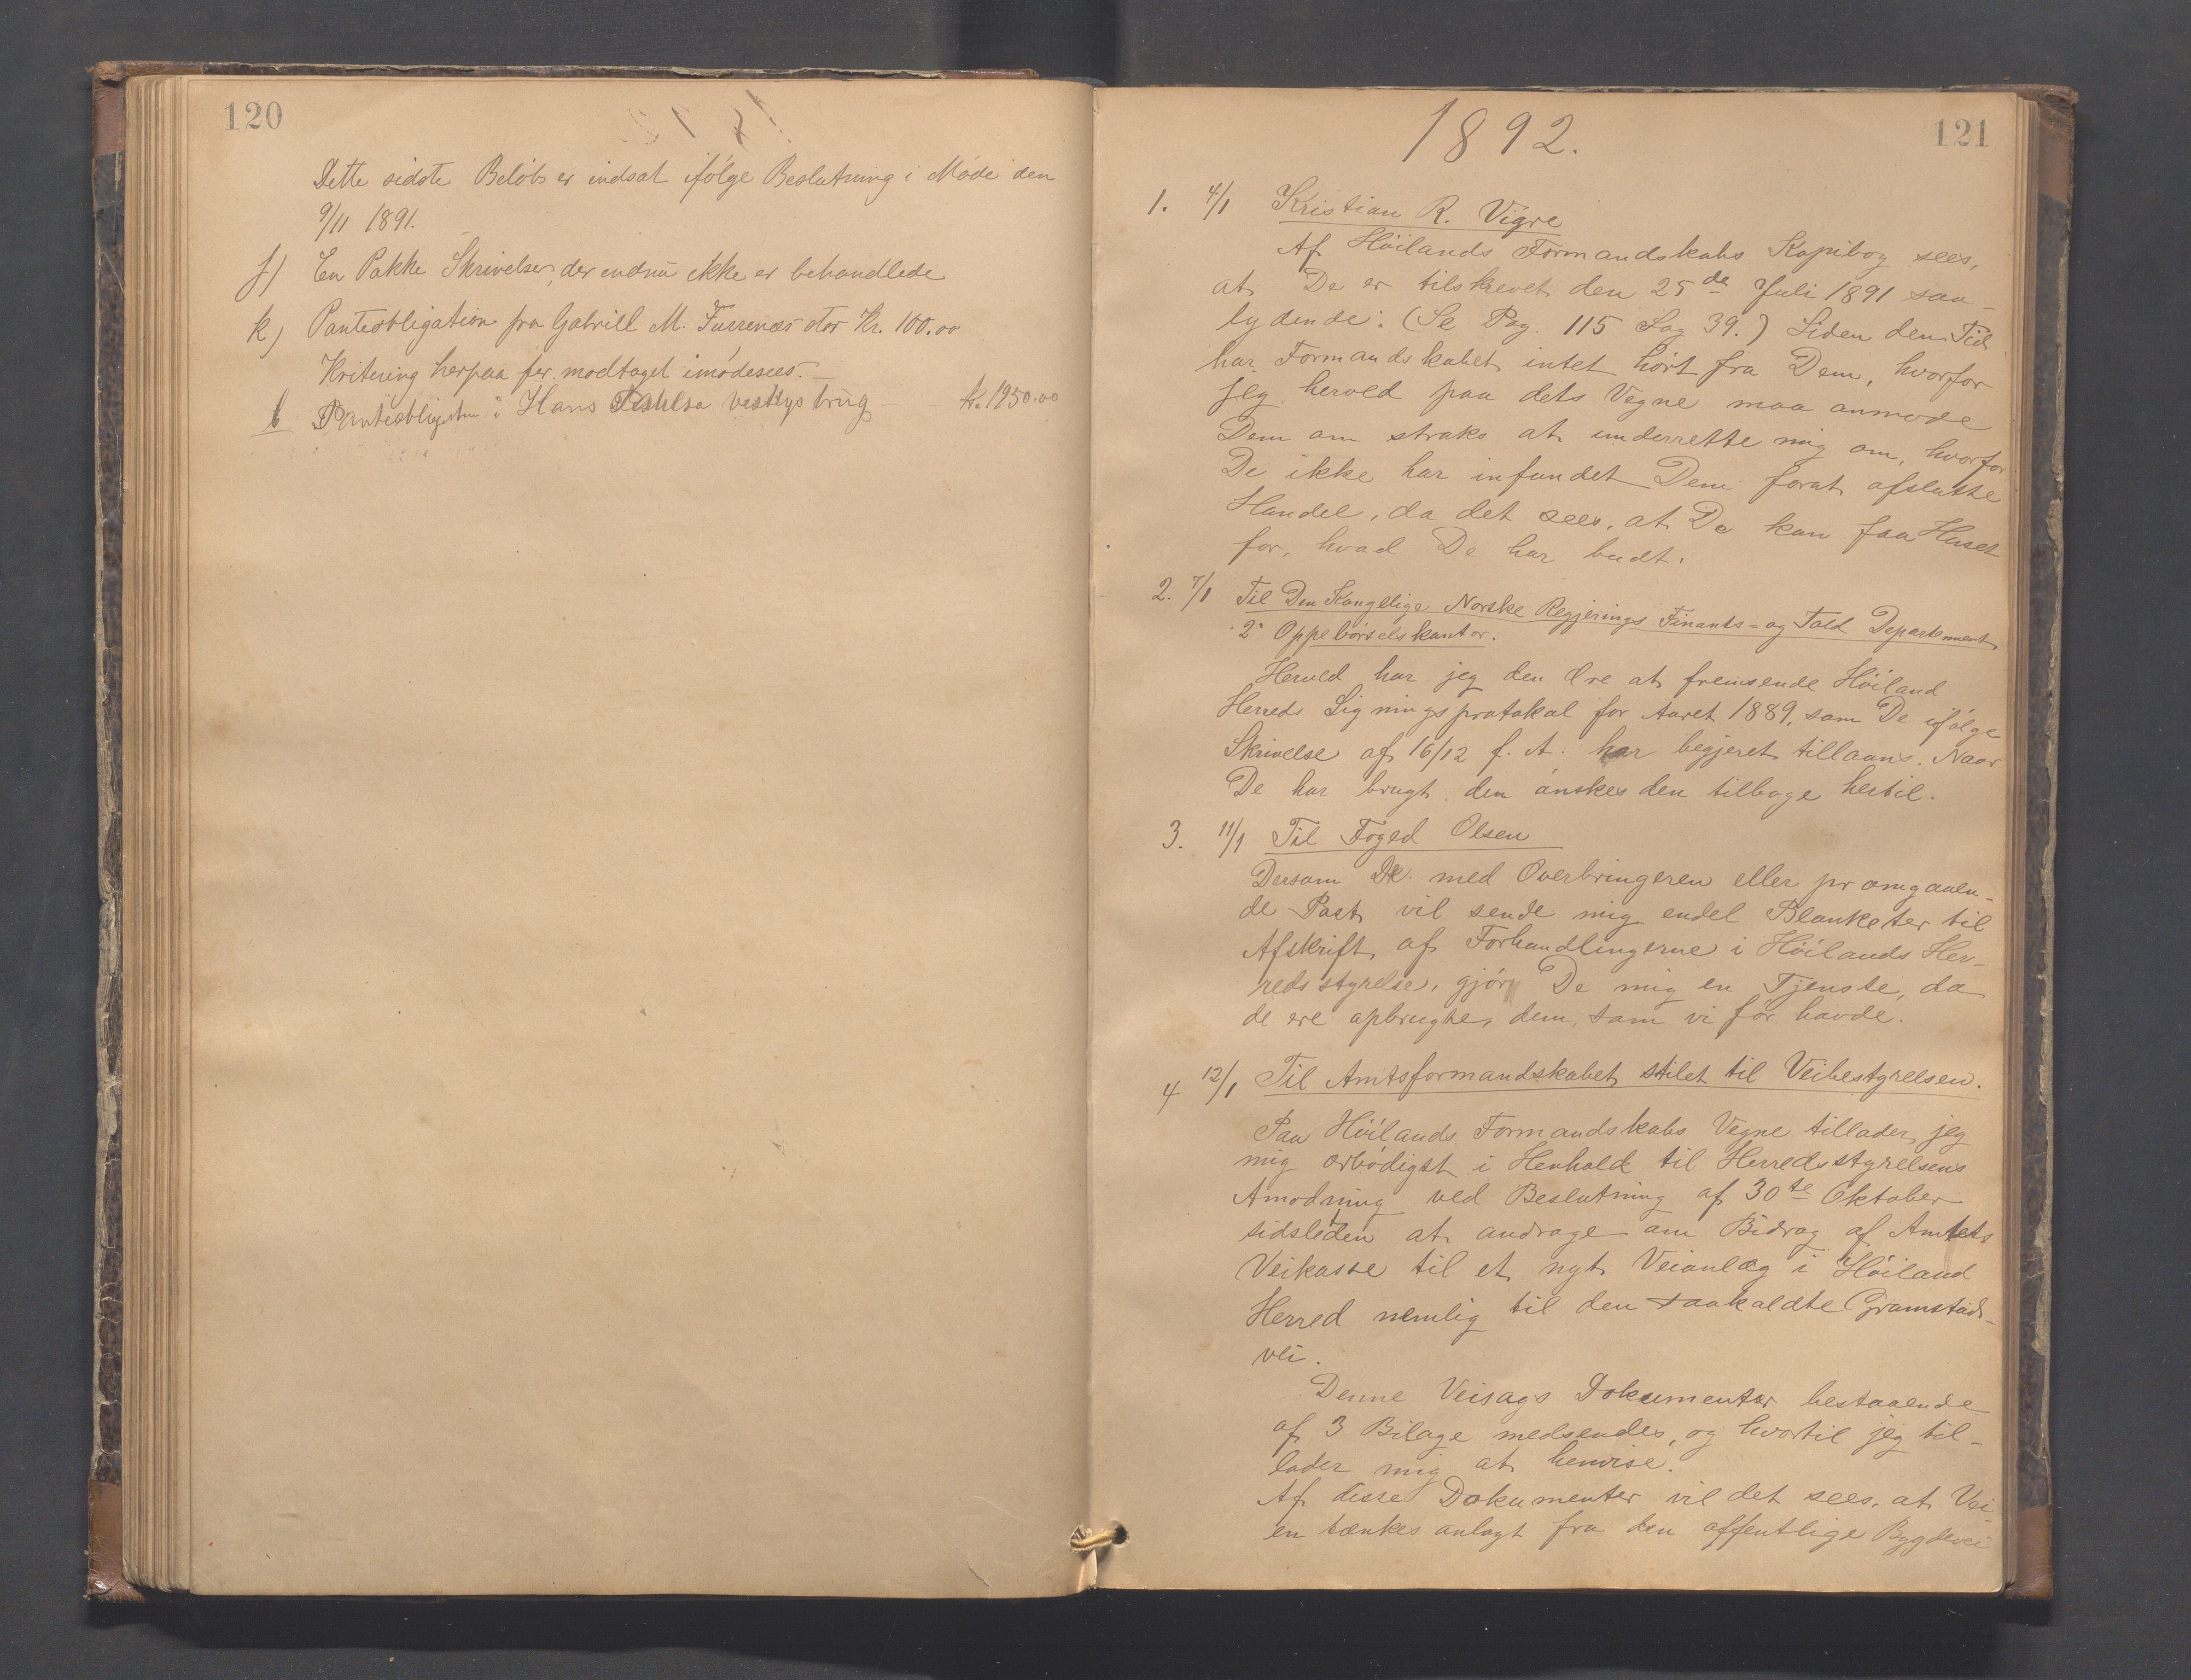 120
Dette sidste Beløb er indsat ifølge Beslutning i Møde den
9/11 1891.
j) En Pakke Skrivelser, der endnu ikke er behandlede
k) Panteobligation fra Gabriell M. stor Kr. 100.00
Kvitering herpaa for modtaget imødesees.
l Panteobligation i Hans brug kr. 1250.00
1892.
121
1. 4/1 Kristian R. Vigre
Af Høilands Formandskabs Kopibog sees,
at De er tilskrevet den 25de Juli 1891 saa-
lydende: (Se Pag. 115 Sag 39.) Siden den Tid
har Formandskabet intet hørt fra Dem, hvorfor
jeg herved paa dets Vegne maa anmode
Dem om straks at underrette mig om, hvorfor
De ikke har infundet Dem forat afslutte
Handel, da det sees, at De kan faa Huset
for, hvad De har budt.
2. 7/1 Til Den Kongelige Norske Regjerings Finants- og Told Departement
2° Oppebørselskontor.
Herved har jeg den Ære at fremsende Høiland
Herreds Ligningsprotokol for Aaret 1889, som De ifølge
Skrivelse af 16/12 f. A. har begjeret tillaans. Naar
De har brugt den ønskes den tilbage hertil.
3. 11/1 Til Foged Olsen
Dersom De med Overbringeren eller pr omgaaen-
de Post vil sende mig endel Blanketer til
Afskrift af Forhandlingerne i Høilands Her-
redsstyrelse, gjør De mig en Tjenste, da
de ere opbrugte, dem, som vi før havde.
4 12/1 Til Amtsformandskabet stilet til Veibestyrelsen.
Paa Høilands Formandskabs Vegne tillader jeg
mig ærbødigst i Henhold til Herredsstyrelsens
Amodning ved Beslutning af 30te Oktober
sidstleden at andrage om Bidrag af Amtets
Veikasse til et nyt Veianlæg i Høiland
Herred nemlig til den saakaldte Gramstad-
vei.
Denne Veisags Dokumenter bestaaende
af 3 Bilage medsendes, og hvortil jeg til-
lader mig at henvise.
Af disse Dokumenter vil det sees, at Vei-
en tænkes anlagt fra den offentlige Bygdevei